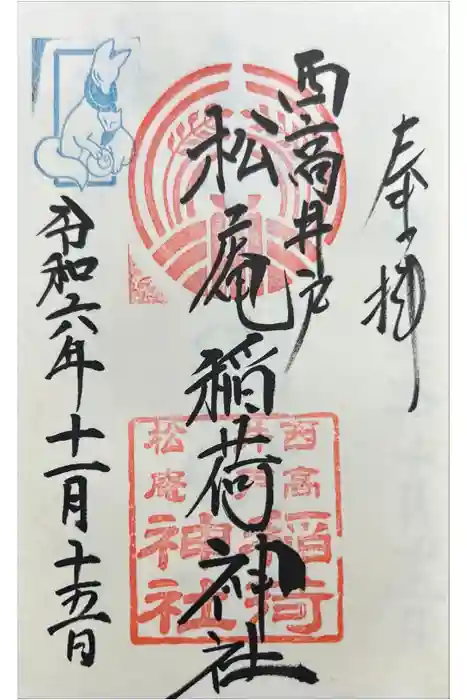 奉拝
西高井戸
松庵稲荷神社
西高
井戸稲荷
松庵
神社
令和六年十一月十五日